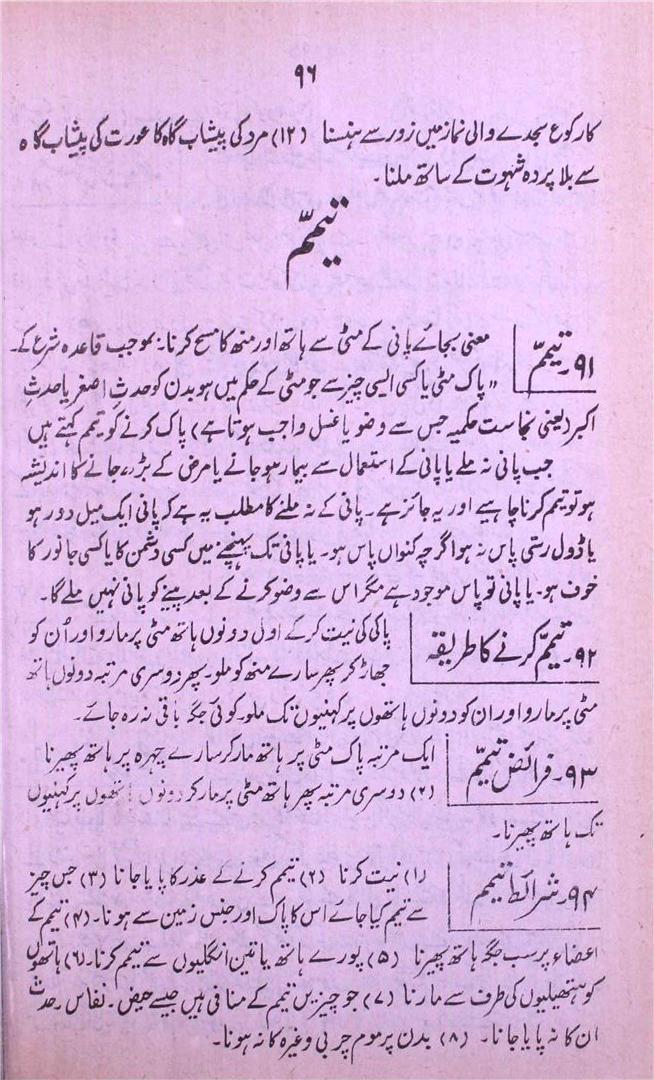 ۹۶
کا رکوع سجدے والی نماز میں زور سے ہنسنا (۱۲) مرد کی پیشاب گاہ کا عورت کی پیشاب گاہ
سے بلا پردہ شہوت کے ساتھ ملنا۔
تیمم
۹۱۔ تیممّ
معنی بجائے پانی کے مٹی سے ہاتھ اور منھ کا مسح کرنا۔ بموجب قاعدہ شرع کے۔
" پاک مٹی یا کسی ایسی چیز سے جو مٹی کے حکم میں ہو بدن کو حدثِ اصغر یا حدثِ
اکبر (یعنی نجاست حکمیہ جس سے وضو یا غسل واجب ہوتا ہے) پاک کرنے کو تیمم کہتے ہیں
جب پانی نہ ملے یا پانی کے استعمال سے بیمار ہوجانے یا مرض کے بڑھ جانے کا اندیشہ
ہو تو تیمم کرنا چاہیے اور یہ جائز ہے۔ پانی کے نہ ملنے کا مطلب یہ ہے کہ پانی ایک میل دور ہو
یا ڈول رسّی پاس نہ ہو اگرچہ کنواں پاس ہو۔ یا پانی تک پہنچنے میں کسی دشمن کا یا کسی جانور کا
خوف ہو۔ یا پانی تو پاس موجود ہے مگر اس سے وضو کرنے کے بعد پینے کو پانی نہیں ملے گا۔
۹۲۔ تیممّ کرنے کا طریقہ
پاکی کی نیت کرکے اول دونوں ہاتھ مٹی پر مارو اور اُن کو
جھاڑ کر پھر سارے منھ کو ملو۔ پھر دوسری مرتبہ دونوں ہاتھ
مٹی پر مارو اور ان کو دونوں ہاتھوں پر کہنیوں تک ملو۔ کوئی جگہ باقی نہ رہ جائے۔
۹۳۔ فرائض تیممّ
ایک مرتبہ پاک مٹی پر ہاتھ مار کر سارے چہرہ پر ہاتھ پھیرنا
(۲) دوسری مرتبہ پھر ہاتھ مٹی پر مار کر دونوں ہاتھوں پر کہنیوں
تک ہاتھ پھیرنا۔
۹۴۔ شرائط تیمم
(۱) نیت کرنا (۲) تیمم کرنے کے عذر کا پایا جانا (۳) جس چیز
سے تیمم کیا جائے اس کا پاک اور جنس زمین سے ہونا۔ (۴) تیمم کے
اعضاء پر سب جگہ ہاتھ پھیرنا (۵) پورے ہاتھ یا تین انگلیوں سے تیمم کرنا۔ (۶) ہاتھوں
کو ہتھیلیوں کی طرف سے مارنا (۷) جو چیزیں تیمم کے منافی ہیں جیسے حیض۔ نفاس۔ حدث
ان کا نہ پایا جانا۔ (۸) بدن پر موم چربی وغیرہ کا نہ ہونا۔